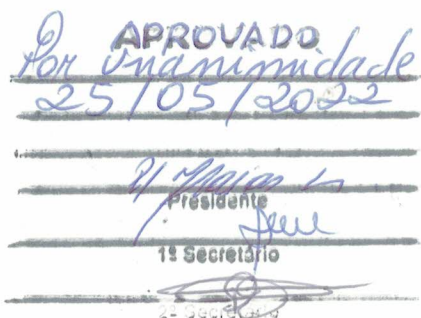 APROVADO
Por unanimidade
25/05/2022
Presidente
1º Secretário
2º Secretário